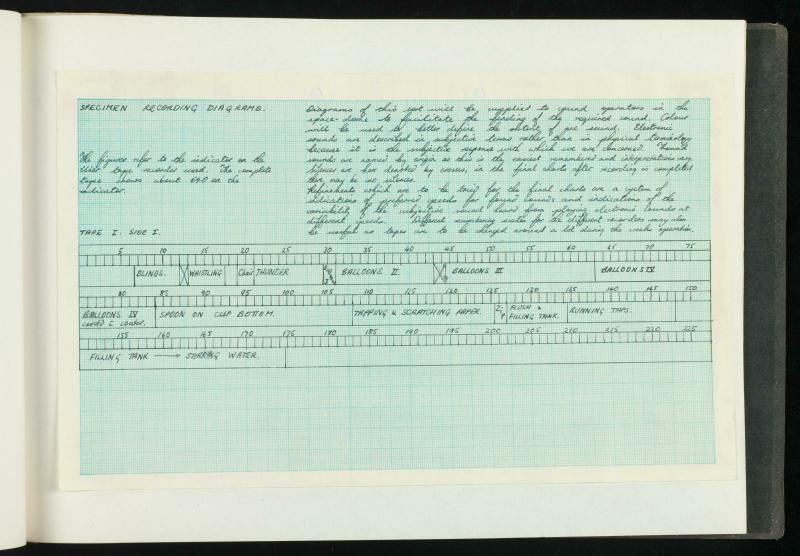 SPECIMEN RECORDING DIAGRAMS.
The figures refer to the indicator on the
Uher tape recorder used. The complete
tape shows about 640 on the
indicator.
Diagrams of this sort will be supplied to sound operators in the
space-dome to facilitate the finding of the required sound. Colour
will be used to better define the extent of one sound. Electronic
sounds are described in subjective terms rather than in physical terminology
because it is the subjective response with which we are concerned. Found
sounds are named by origin as this is the easiest remembered and interpretations vary.
Silences are here denoted by crosses, in the final charts after recording is completed
there may be no silences.
Refinements which are to be tried for the final charts are a system of
indications of preferred speeds for found sounds and indications of the
variability of the subjective sound heard from playing electronic sounds at
different speeds. Different numbering scales for the different recorders may also
be useful as tapes are to be changed around a lot during the weeks operation.
TAPE I. SIDE I.
5 10 15 20 25 30 35 40 45 50 55 60 65 70 75
BLINDS. WHISTLING Chair THUNDER BALLOONS II. BALLOONS III BALLOONS IV
80 85 90 95 100 105 110 115 120 125 130 135 140 145 150
BALLOONS IV SPOON ON CUP BOTTOM. TAPPING & SCRATCHING PAPER. Zip FLUSH & FILLING TANK. RUNNING TAPS.
155 160 165 170 175 180 185 190 195 200 205 210 215 220 225
FILLING TANK → STIRRING WATER.